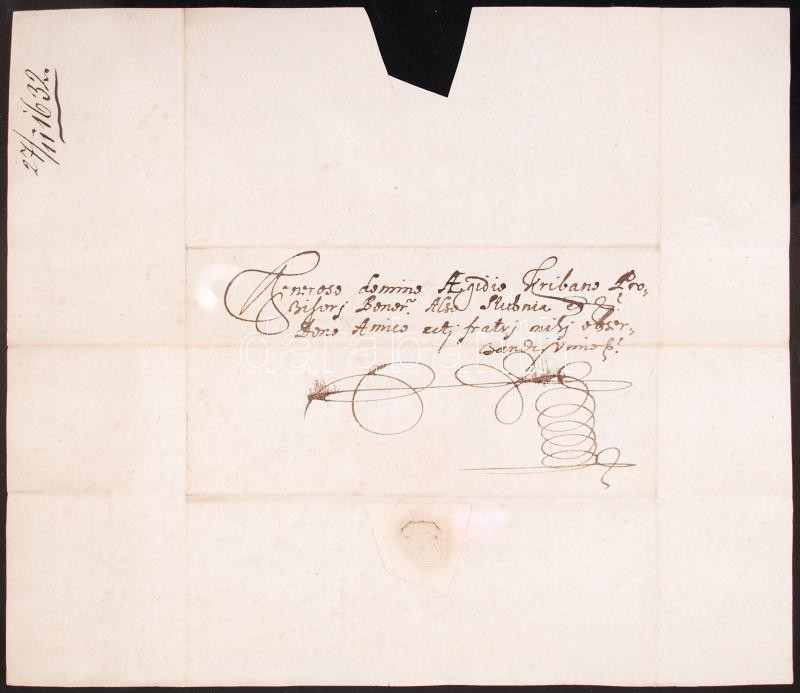 27/11 1632.
Generoso domino Ægidio Kribano Pro-
visori Bonor. Also Stubnia etc.
Dono Amico uti fratri mihi obser-
vandissimo
darabanth